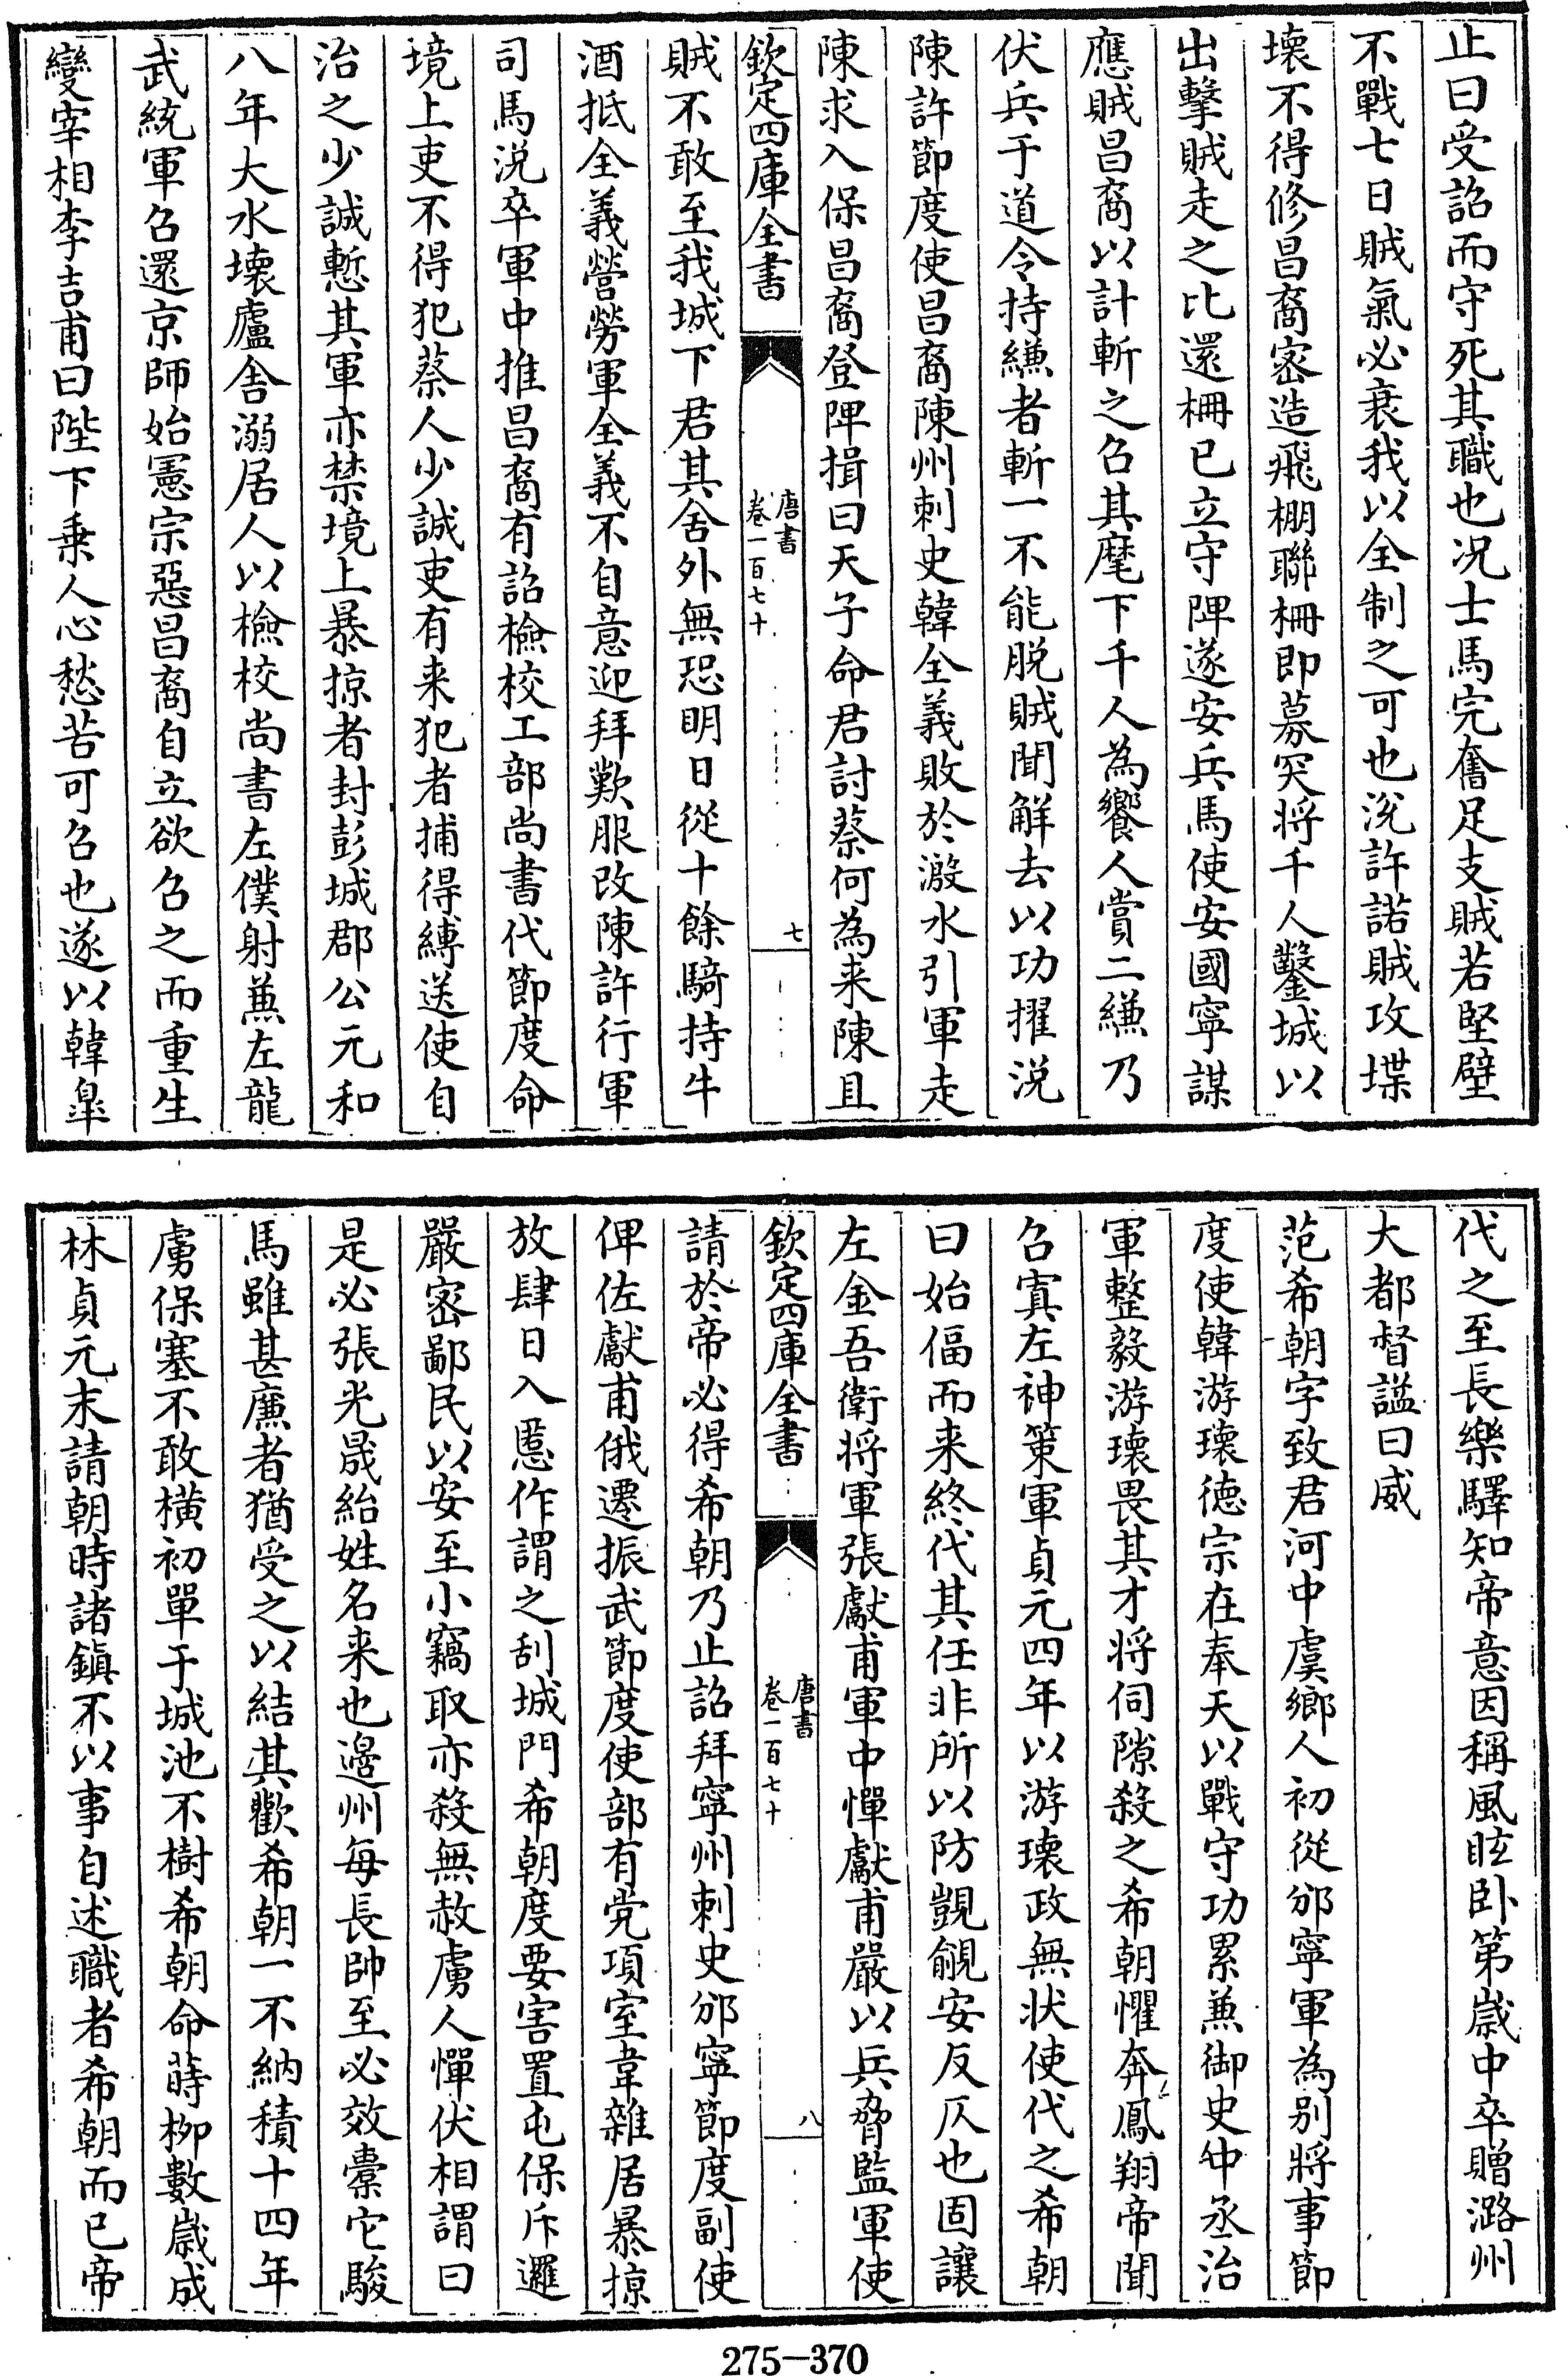 止曰受詔而守死其職也况士馬完奮足支賊若堅壁
不戰七日賊氣必衰我以全制之可也説許諾賊攻堞
壊不得修昌裔密造飛棚聯柵即募突将千人鑿城以
出擊賊走之比還柵已立守陴遂安兵馬使安國寧謀
應賊昌裔以計斬之召其麾下千人為饗人賞二縑乃
伏兵于道令持縑者斬一不能脱賊聞解去以功擢説
陳許節度使昌裔陳州刺史韓全義敗於溵水引軍走
陳求入保昌裔登陴揖曰天子命君討蔡何為来陳且
欽定四庫全書
唐書
卷一百七十
七
賊不敢至我城下君其舍外無恐明日從十餘騎持牛
酒抵全義營勞軍全義不自意迎拜歎服改陳許行軍
司馬説卒軍中推昌裔有詔檢校工部尚書代節度命
境上吏不得犯蔡人少誠吏有来犯者捕得縛送使自
治之少誠慙其軍亦禁境上暴掠者封彭城郡公元和
八年大水壊廬舍溺居人以檢校尚書左僕射兼左龍
武統軍召還京師始憲宗惡昌裔自立欲召之而重生
變宰相李吉甫曰陛下乗人心愁苦可召也遂以韓臯
代之至長樂驛知帝意因稱風眩卧第歲中卒贈潞州
大都督諡曰威
范希朝字致君河中虞鄉人初從邠寧軍為别將事節
度使韓游瓌徳宗在奉天以戰守功累兼御史中丞治
軍整毅游瓌畏其才将伺隙殺之希朝懼奔鳳翔帝聞
召寘左神策軍貞元四年以游瓌政無状使代之希朝
曰始偪而来終代其任非所以防覬覦安反仄也固讓
左金吾衛将軍張獻甫軍中憚獻甫嚴以兵脅監軍使
欽定四庫全書
唐書
卷一百七十
八
請於帝必得希朝乃止詔拜寧州刺史邠寧節度副使
俾佐獻甫俄遷振武節度使部有党項室韋雜居暴掠
放肆日入慝作謂之刮城門希朝度要害置屯保斥邏
嚴密鄙民以安至小竊取亦殺無赦虜人憚伏相謂曰
是必張光晟紿姓名来也邉州每長帥至必效橐它駿
馬雖甚廉者猶受之以結其歡希朝一不納積十四年
虜保塞不敢横初單于城池不樹希朝命蒔栁數歲成
林貞元末請朝時諸鎮不以事自述職者希朝而已帝
275-370